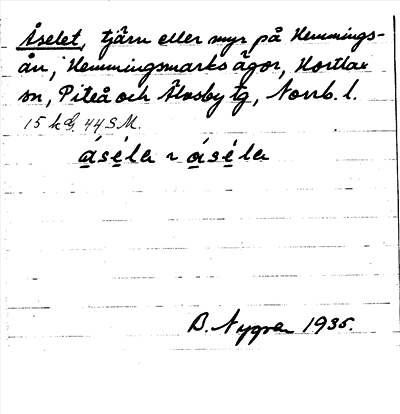 Åselet, tjärn eller myr på Hemmings-
ån, Hemmingsmarks ägor, Hortlax
sn, Piteå och Älvsby tg, Norrb. l.
15 k G. 44 S M.
á̱sé̱la ~ á̱sé̱la
B. Nygren 1935.